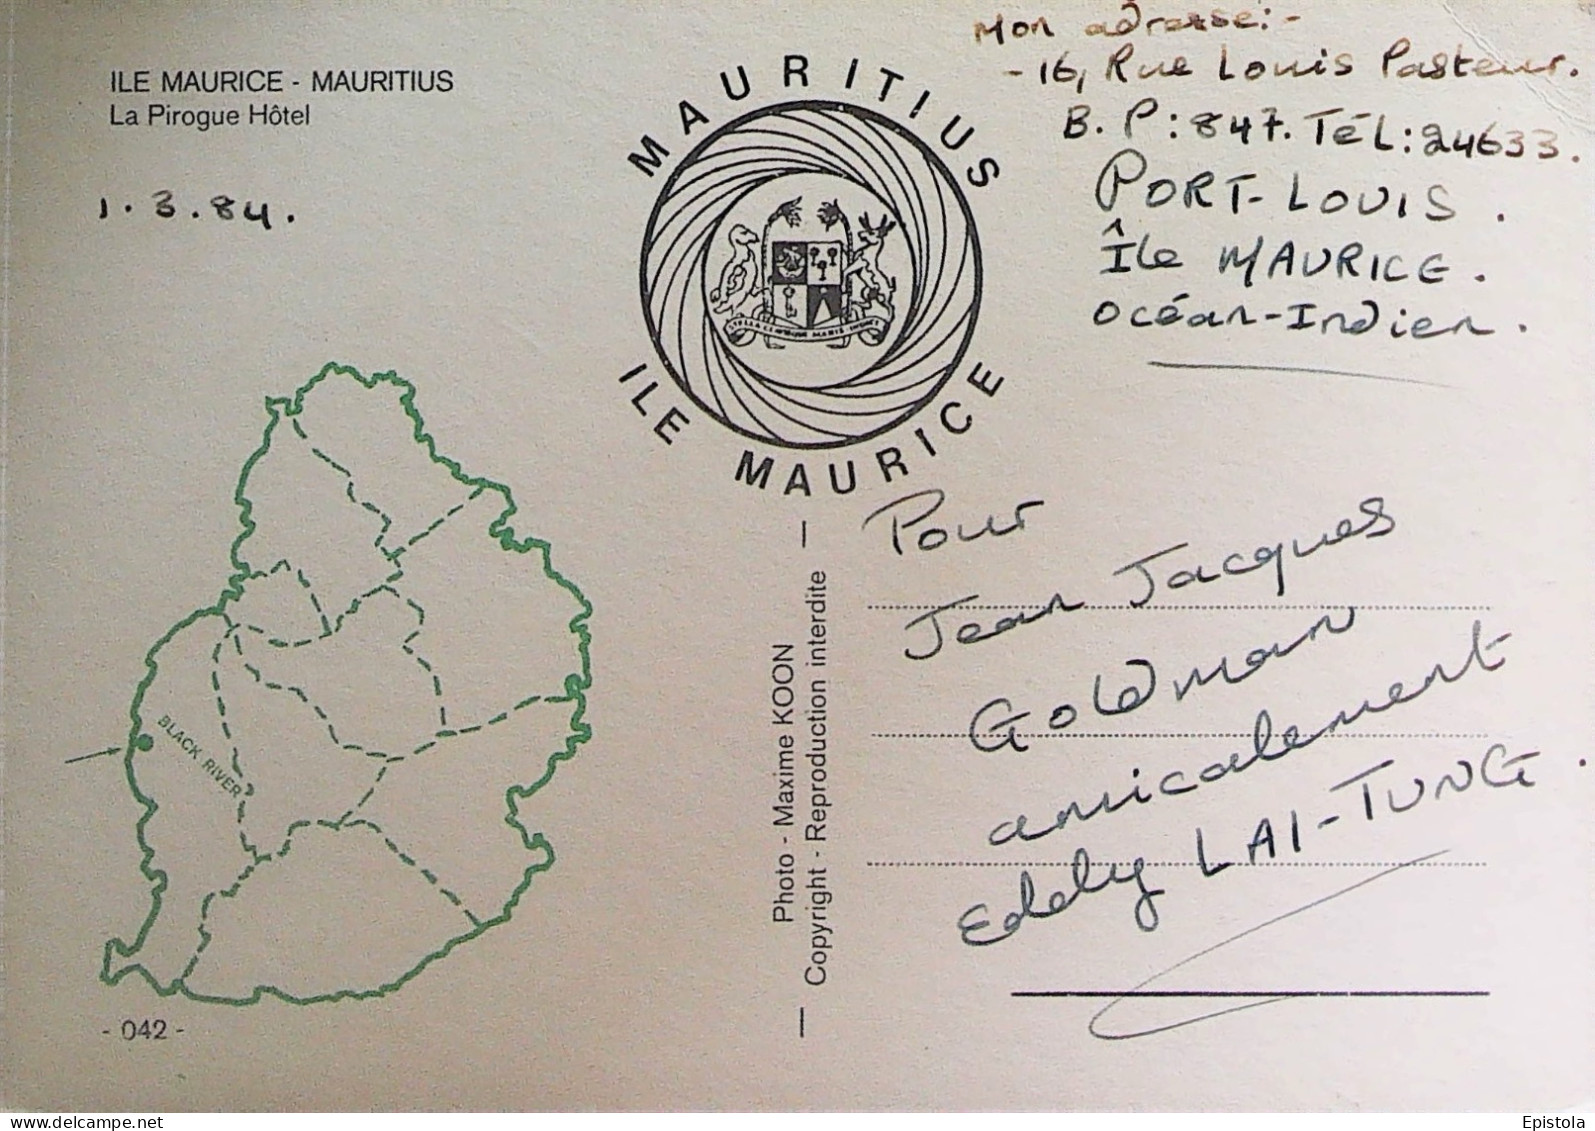 ILE MAURICE - MAURITIUS
La Pirogue Hôtel
1.3.84.
MAURITIUS
STELLA CLAVISQUE MARIS INDICI
ILE MAURICE
Mon adresse:-
-16, Rue Louis Pasteur.
B.P:847. TéL:24633.
PORT-LOUIS.
Île MAURICE.
Océan-Indien.
BLACK RIVER
- 042 -
Photo - Maxime KOON
Copyright - Reproduction interdite
Pour
Jean Jacques
Goldman
amicalement
Eddy LAI-TUNG.
www.delcampe.net
Epistola